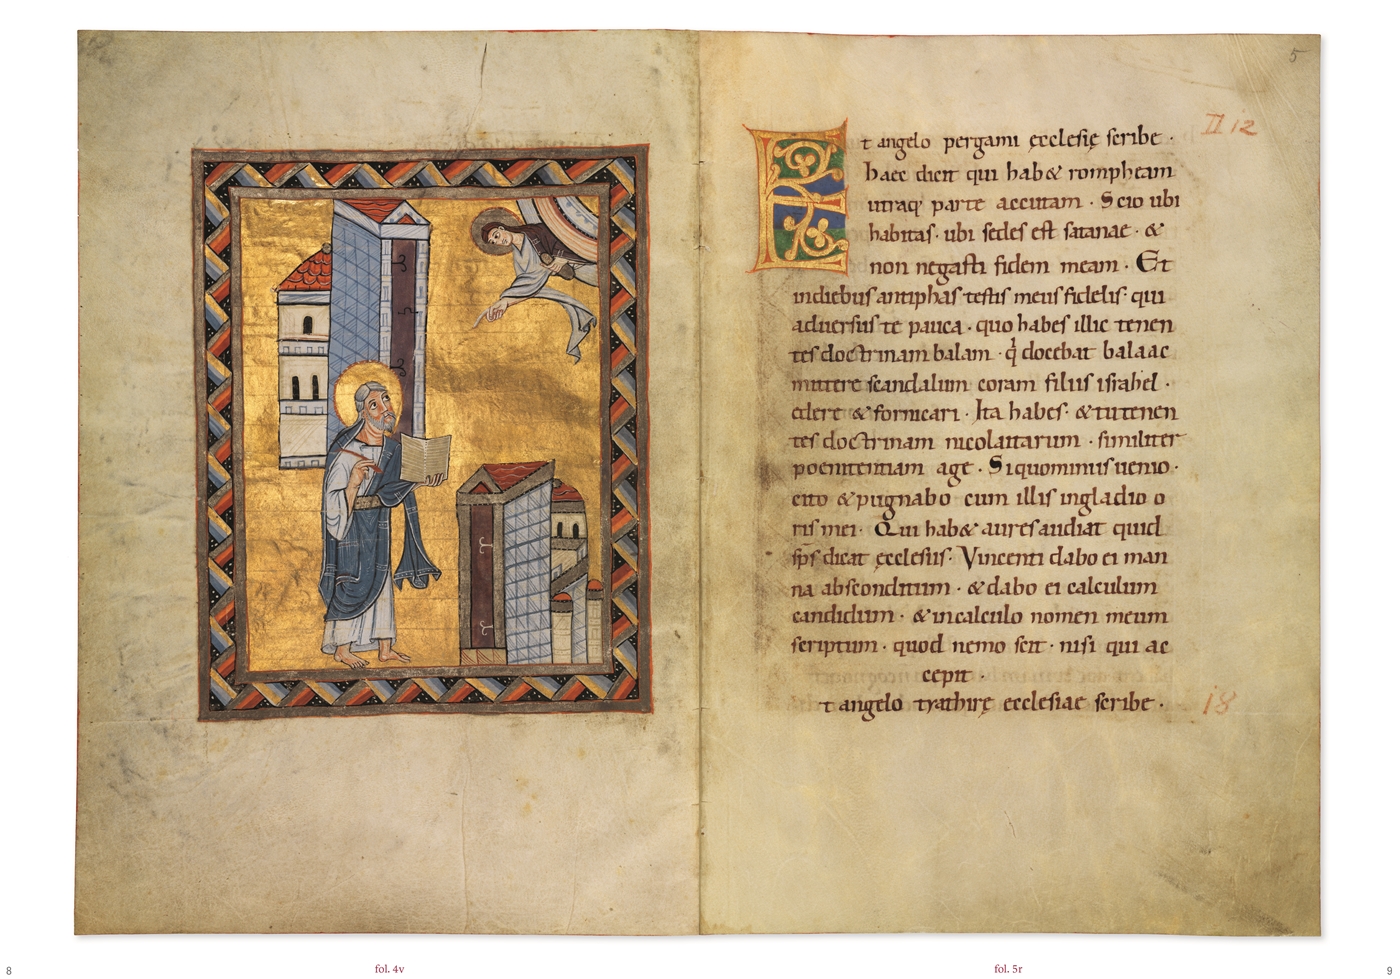 5
II 12
Et angelo pergami ęcclesię scribe ·
haec dicit qui hab& rompheam
utraq; parte accutam · Scio ubi
habitas · ubi sedes est satanae · &
non negasti fidem meam · Et
indiebus antiphas testis meus fidelis · qui
adversus te pauca · quo habes illic tenen
tes doctrinam balam · q̇ docebat balaac
mittere scandalum coram filiis israhel ·
edere & fornicari · Ita habes · & tu tenen
tes doctrinam nicolaitarum · similiter
poenitentiam age · Siquominus uenio ·
cito & pugnabo cum illis ingladio o
ris mei · Qui hab& aures audiat quid
sp̄s dicat ęcclesiis · Vincenti dabo ei man
na absconditum · & dabo ei calculum
candidum · & incalculo nomen meum
scriptum · quod nemo scit · nisi qui ac
cepit ·
t angelo tyathirę ecclesiae scribe ·
18
8
fol. 4v
fol. 5r
9